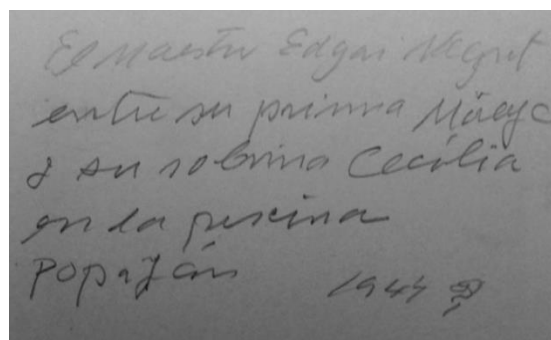 El Maestro Edgar Negret
entre su prima
y su sobrina Cecilia
en la piscina
Popayán 1944